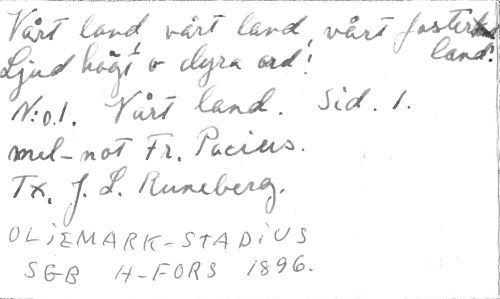 Vårt land, vårt land, vårt foster
land!
Ljud högt o dyra ord!
N:o 1. Vårt land. Sid. 1.
mel-not Fr. Pacius.
Tx. J. L. Runeberg.
OLiEMARK-STADiUS
SGB H-FORS 1896.